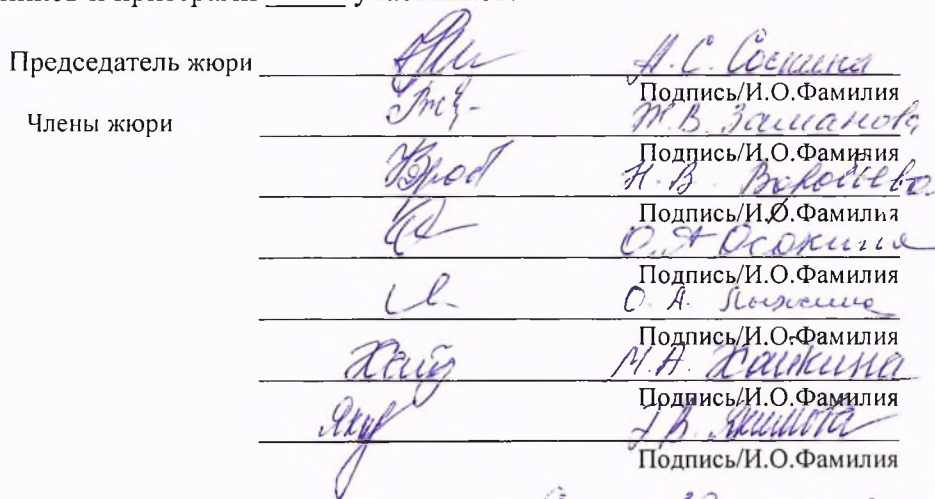 Председатель жюри А.С. Соскина
Подпись/И.О.Фамилия
Члены жюри Ж.В. Заманова
Подпись/И.О.Фамилия
Н.В. Воробьева
Подпись/И.О.Фамилия
О.А Осокина
Подпись/И.О.Фамилия
О.А.
Подпись/И.О.Фамилия
М.А. Хайкина
Подпись/И.О.Фамилия
В. Якимова
Подпись/И.О.Фамилия